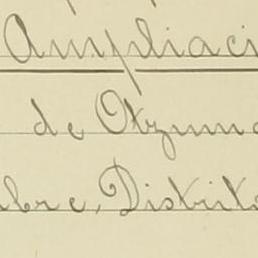 Ampliaci
de Otzuma
mbre, Distrito